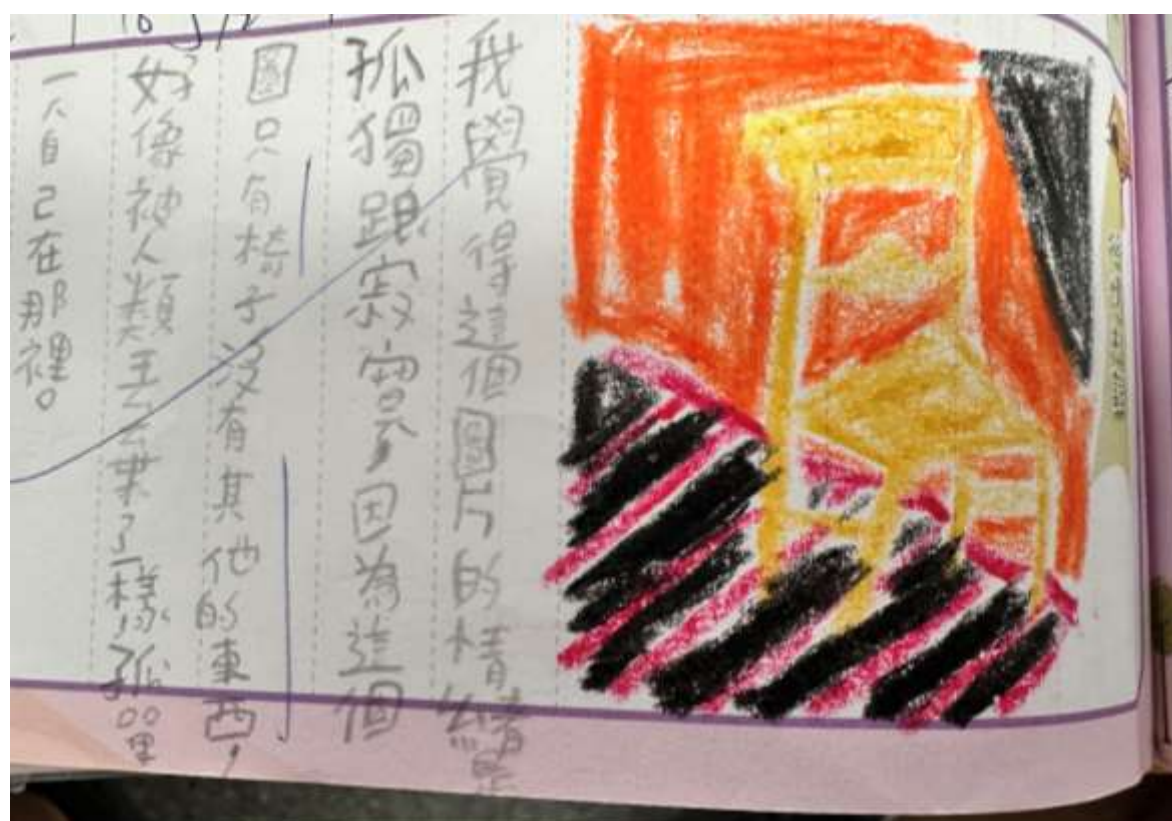 我覺得這個圖片的情緒是
孤獨跟寂寞因為這個
圖只有椅子沒有其他的東西,
好像被人類丟棄了一樣,孤單
一人自己在那裡。